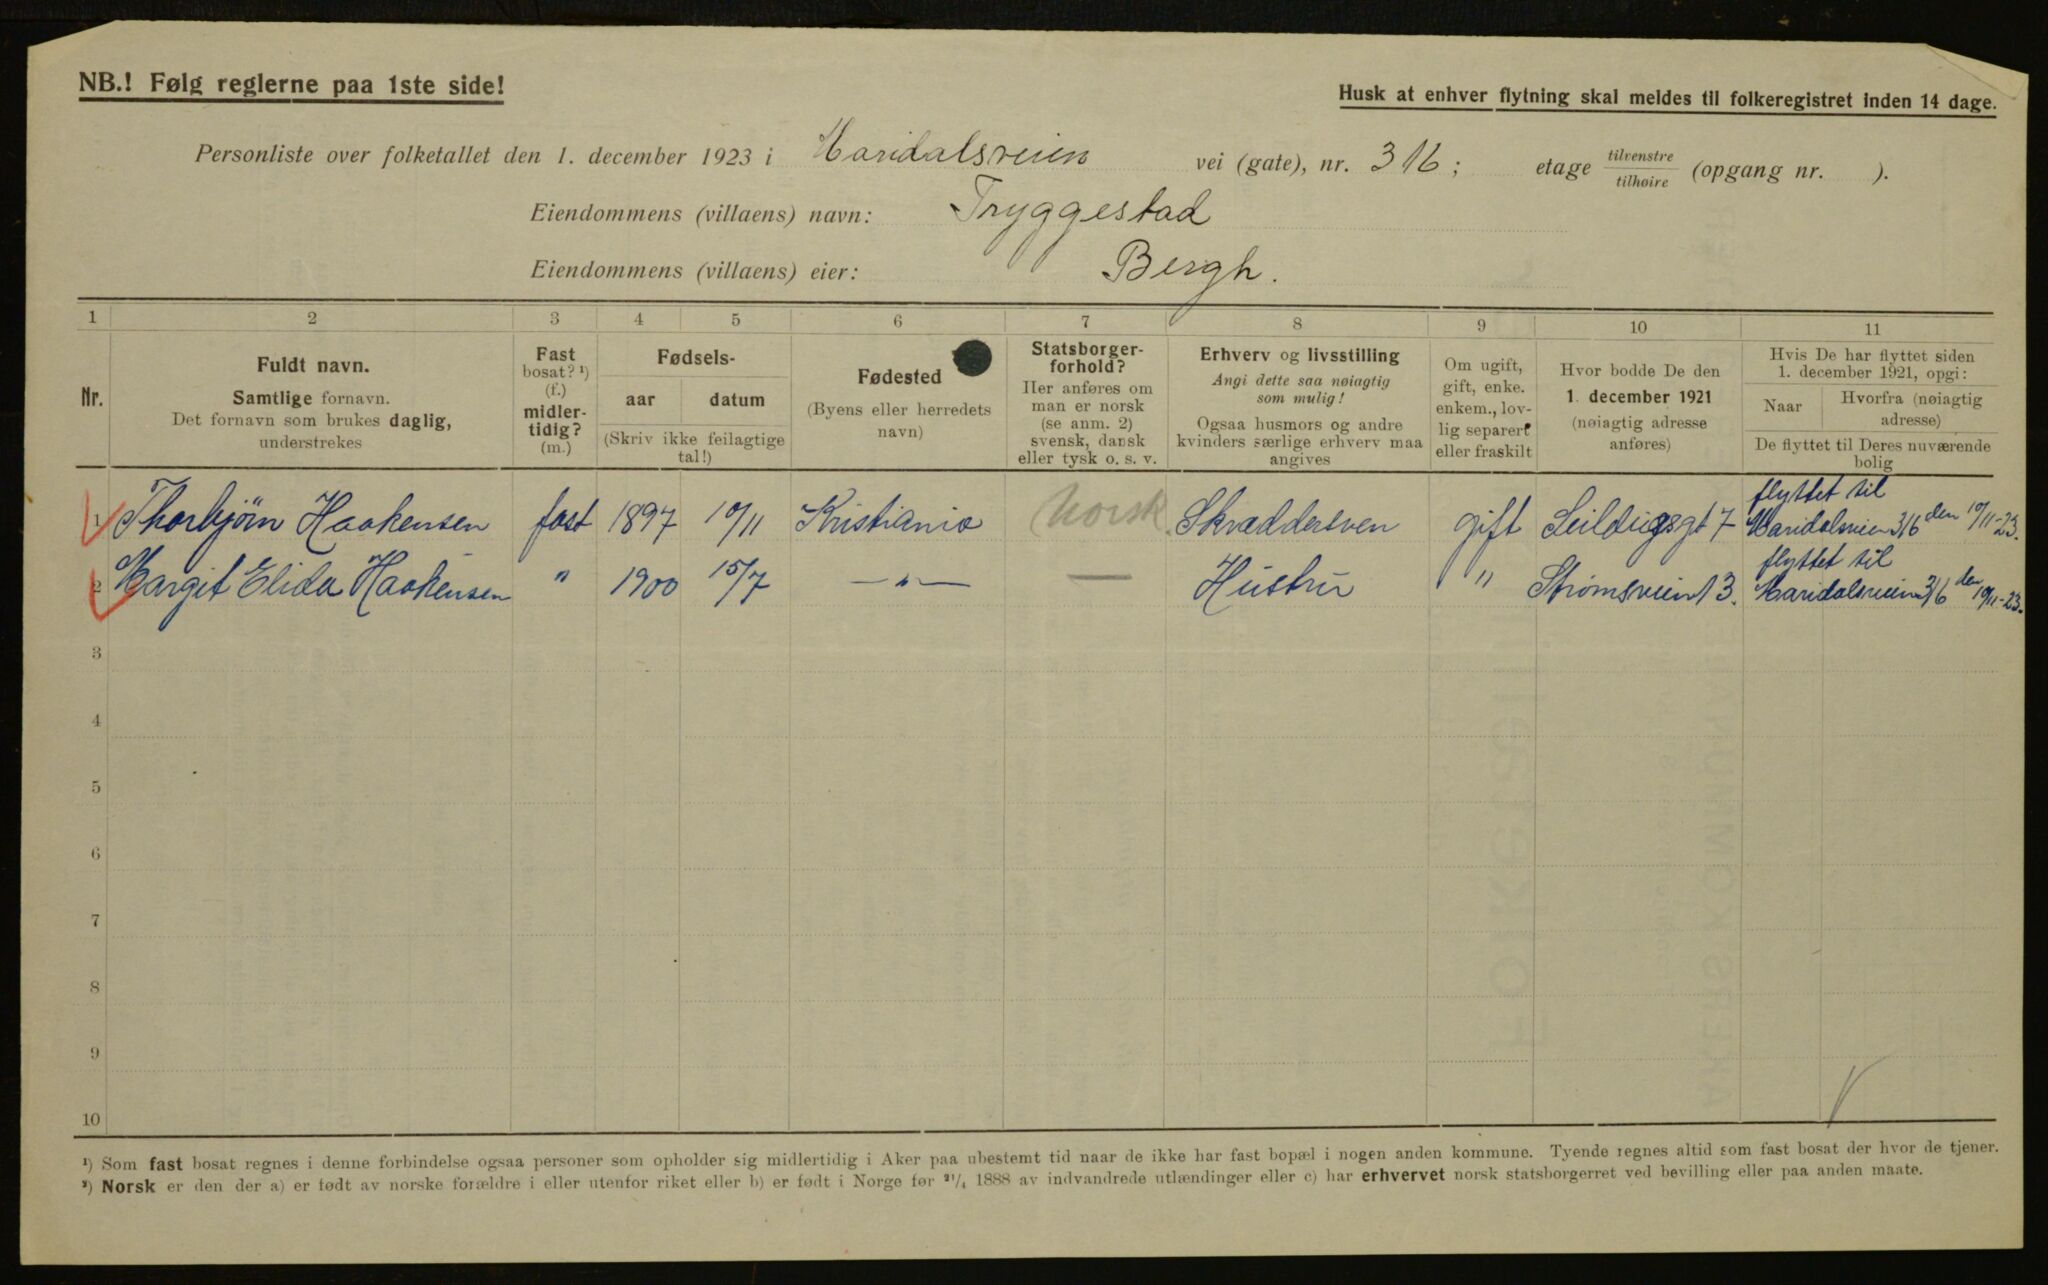 NB.! Følg reglerne paa 1ste side!
Husk at enhver flytning skal meldes til folkeregistret inden 14 dage.
Personliste over folketallet den 1. december 1923 i Maridalsveien vei (gate), nr. 316; etage tilvenstre/tilhøire (opgang nr. ).
Eiendommens (villaens) navn: Tryggestad
Eiendommens (villaens) eier: Bergh.
1 2 3 4 5 6 7 8 9 10 11
Nr.
Fuldt navn.
Samtlige fornavn.
Det fornavn som brukes daglig,
understrekes
Fast
bosat? ¹)
(f.)
midler-
tidig?
(m.)
Fødsels-
aar datum
(Skriv ikke feilagtige
tal!)
Fødested
(Byens eller herredets
navn)
Statsborger-
forhold?
Her anføres om
man er norsk
(se anm. 2)
svensk, dansk
eller tysk o. s. v.
Erhverv og livsstilling
Angi dette saa nøiagtig
som mulig!
Ogsaa husmors og andre
kvinders særlige erhverv maa
angives
Om ugift,
gift, enke.
enkem., lov-
lig separert
eller fraskilt
Hvor bodde De den
1. december 1921
(nøiagtig adresse
anføres)
Hvis De har flyttet siden
1. december 1921, opgi:
Naar Hvorfra (nøiagtig
adresse)
De flyttet til Deres nuværende
bolig
flyttet til
1 Thorbjörn Haakensen fast 1897 10/11 Kristiania Norsk Skræddersven gift Seildugsgt 7 Maridalsveien 316 den 10/11-23.
flyttet til
2 Margit Elida Haakensen " 1900 15/7 —"— — Hustru " Strømsveien 13. Maridalsveien 316 den 10/11-23.
3
4
5
6
7
8
9
10
¹) Som fast bosat regnes i denne forbindelse ogsaa personer som opholder sig midlertidig i Aker paa ubestemt tid naar de ikke har fast bopæl i nogen anden kommune. Tyende regnes altid som fast bosat der hvor de tjener.
²) Norsk er den der a) er født av norske forældre i eller utenfor riket eller b) er født i Norge før ²¹/₄ 1888 av indvandrede utlændinger eller c) har erhvervet norsk statsborgerret ved bevilling eller paa anden maate.